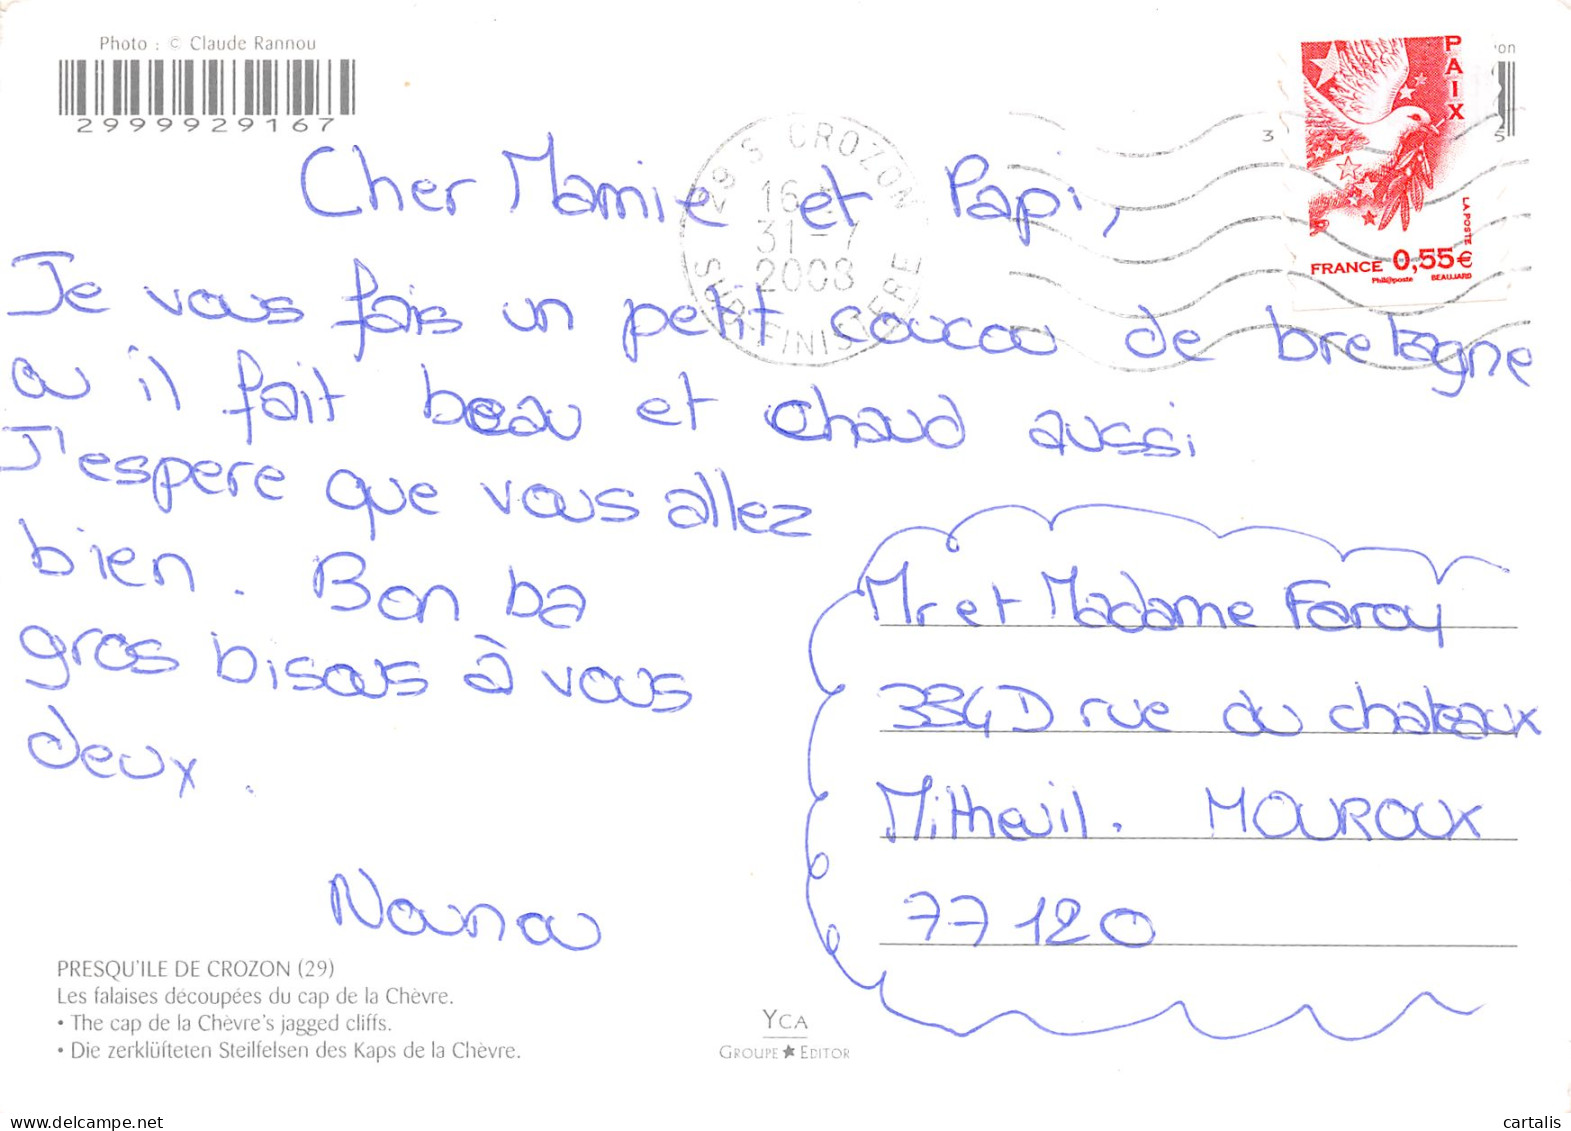 Photo : © Claude Rannou
2999929167
PAIX
LA POSTE
FRANCE 0,55€
Phil@poste BEAUJARD
3
5
29 S CROZON
16
31-7
2008
FINISTERE
Cher Mamie et Papi,
Je vous fais un petit coucou de bretagne
ou il fait beau et chaud aussi
J'espere que vous allez
bien. Bon ba
gros bisous à vous
deux.
Nounou
Mr et Madame Faroy
334D rue du chateaux
Mitheuil. MOUROUX
77120
PRESQU'ILE DE CROZON (29)
Les falaises découpées du cap de la Chèvre.
• The cap de la Chèvre's jagged cliffs.
• Die zerklüfteten Steilfelsen des Kaps de la Chèvre.
YCA
GROUPE ★ EDITOR
cartalis